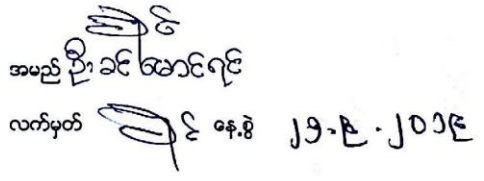 အမည် ဦးခင်မောင်ရင်
လက်မှတ် နေ့စွဲ ၂၁.၉.၂၀၁၉